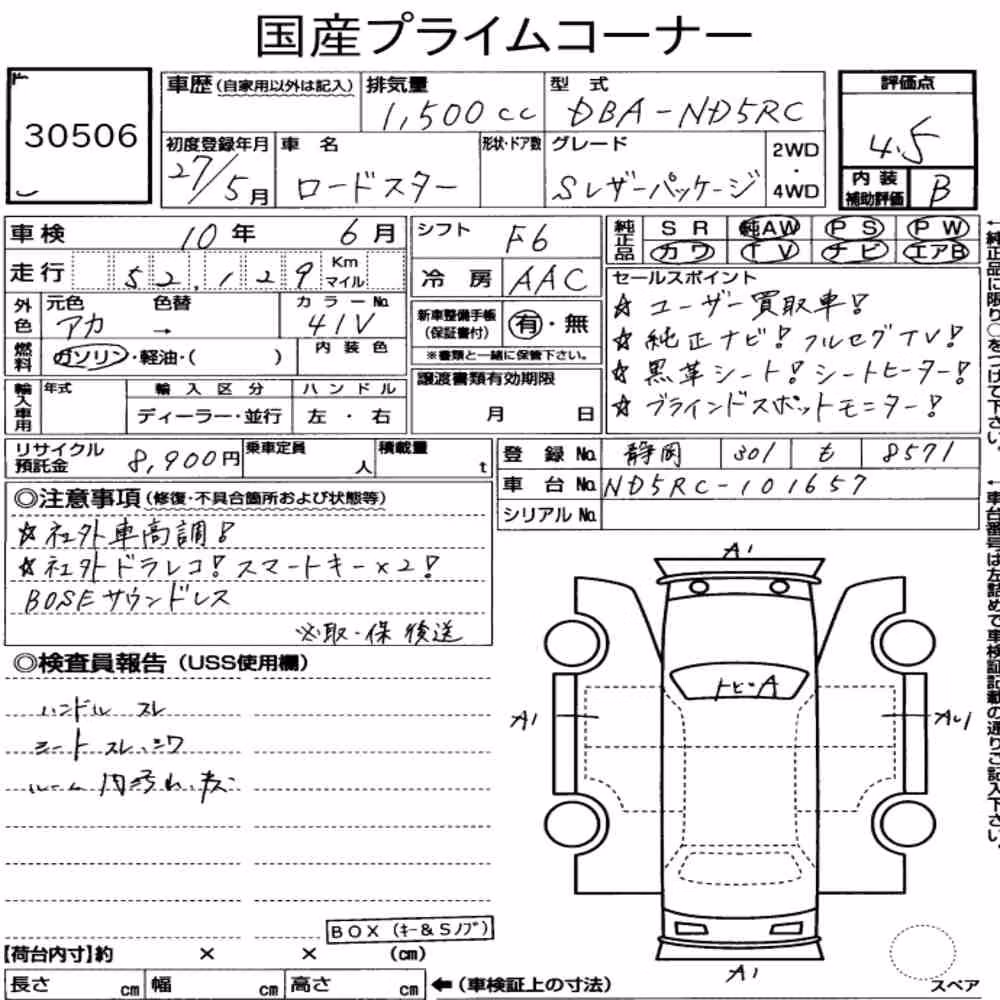 国産プライムコーナー
30506
車歴(自家用以外は記入) 排気量 型 式 評価点
1,500cc DBA-ND5RC 4.5
初度登録年月 車 名 形状・ドア数 グレード 2WD・4WD
27/5月 ロードスター Sレザーパッケージ
内装補助評価 B
車検 10年 6月
走行 52,129 Km マイル
外色 元色 色替 カラーNo.
アカ → 41V
燃料 ガソリン・軽油・( ) 内装色
輸入車用 年式 輸入区分 ハンドル
ディーラー・並行 左・右
シフト F6
冷房 AAC
新車整備手帳(保証書付) 有・無
※書類と一緒に保管下さい。
譲渡書類有効期限
月 日
純正品 SR 純AW PS PW
カワ TV ナビ エアB
セールスポイント
☆ユーザー買取車!
☆純正ナビ!フルセグTV!
☆黒革シート!シートヒーター!
☆ブラインドスポットモニター!
←純正品に限り○をつけて下さい。
リサイクル預託金 8,900円 乗車定員 人 積載量 t
登録No. 静岡 301 も 8571
車台No. ND5RC-101657
シリアルNo.
←車台番号は左詰めで車検証記載の通りご記入下さい。
◎注意事項(修復・不具合箇所および状態等)
☆社外車高調!
☆社外ドラレコ!スマートキー×2!
BOSEサウンドレス
※取・保 後送
◎検査員報告(USS使用欄)
ハンドル スレ
シート スレ、シワ
ルーム 内汚れ、キズ
A1
トビ-A
A1
AU1
A1
BOX (キー&Sノブ)
【荷台内寸】約 × × (cm)
長さ cm 幅 cm 高さ cm ←(車検証上の寸法)
スペア